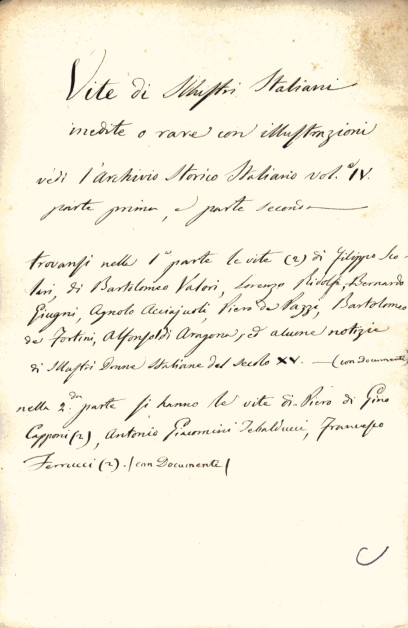 Vite di Illustri Italiani
inedite o rare con illustrazioni
vedi l'Archivio Storico Italiano vol.e IV.
parte prima, e parte seconda
trovansi nella 1a parte le vite (2) di Filippo Sco-
lari, di Bartolomeo Valori, Lorenzo Ridolfi, Bernardo
Giugni, Agnolo Acciajuoli, Piero de Pazzi, Bartolomeo
de Fortini, Alfonso di Aragona, ed alcune notizie
di Illustri Donne Italiane del secolo XV. — (con documenti)
nella 2.da parte si hanno le vite di Piero di Gino
Capponi (2), Antonio Giacomini Tebalducci, Francesco
Ferrucci (2). /con Documenti/